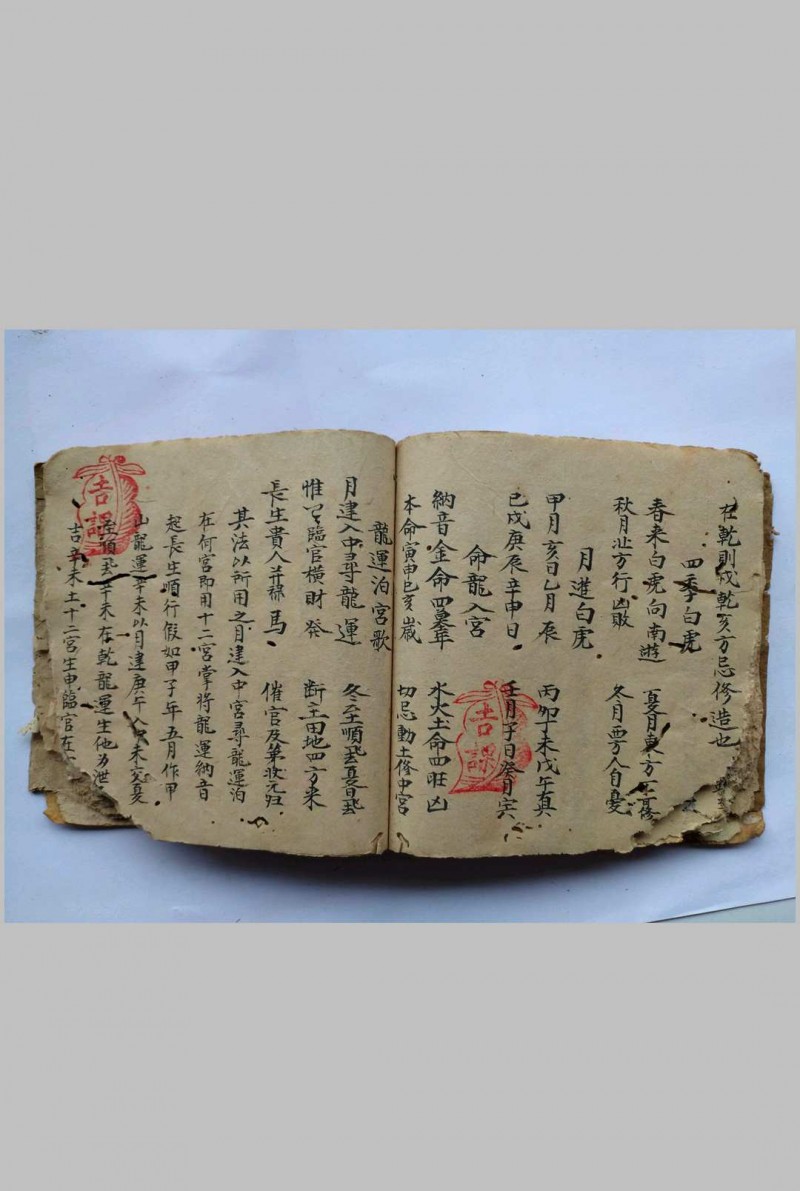 在乾則戌乾亥方忌修造也
四季白虎
春来白虎向南遊 夏月東方不
秋月北方行凶敗 冬月西方人自憂
月遊白虎
甲月亥日乙月辰 丙卯丁未戊午真
已戌庚辰辛申日 壬月子日癸月寅
命龍入宮
納音金命四墓年 水火土命四旺凶
本命寅申巳亥歲 切忌動土修中宮
龍運泊宮歌
月建入中尋龍運 冬至順飛夏逆飛
惟有臨官橫財發 断主田地四方来
長生貴人并祿馬 催官及第狀元归
其法以所用之月建入中宮尋龍運泊
在何宮即用十二宮掌將龍運納音
起長生順行假如甲子年五月作甲
山龍運辛未以月建庚午入中未交夏
至順飛辛未在乾龍運生他為泄
吉辛未土十二宮生申臨官在
吉課
吉課